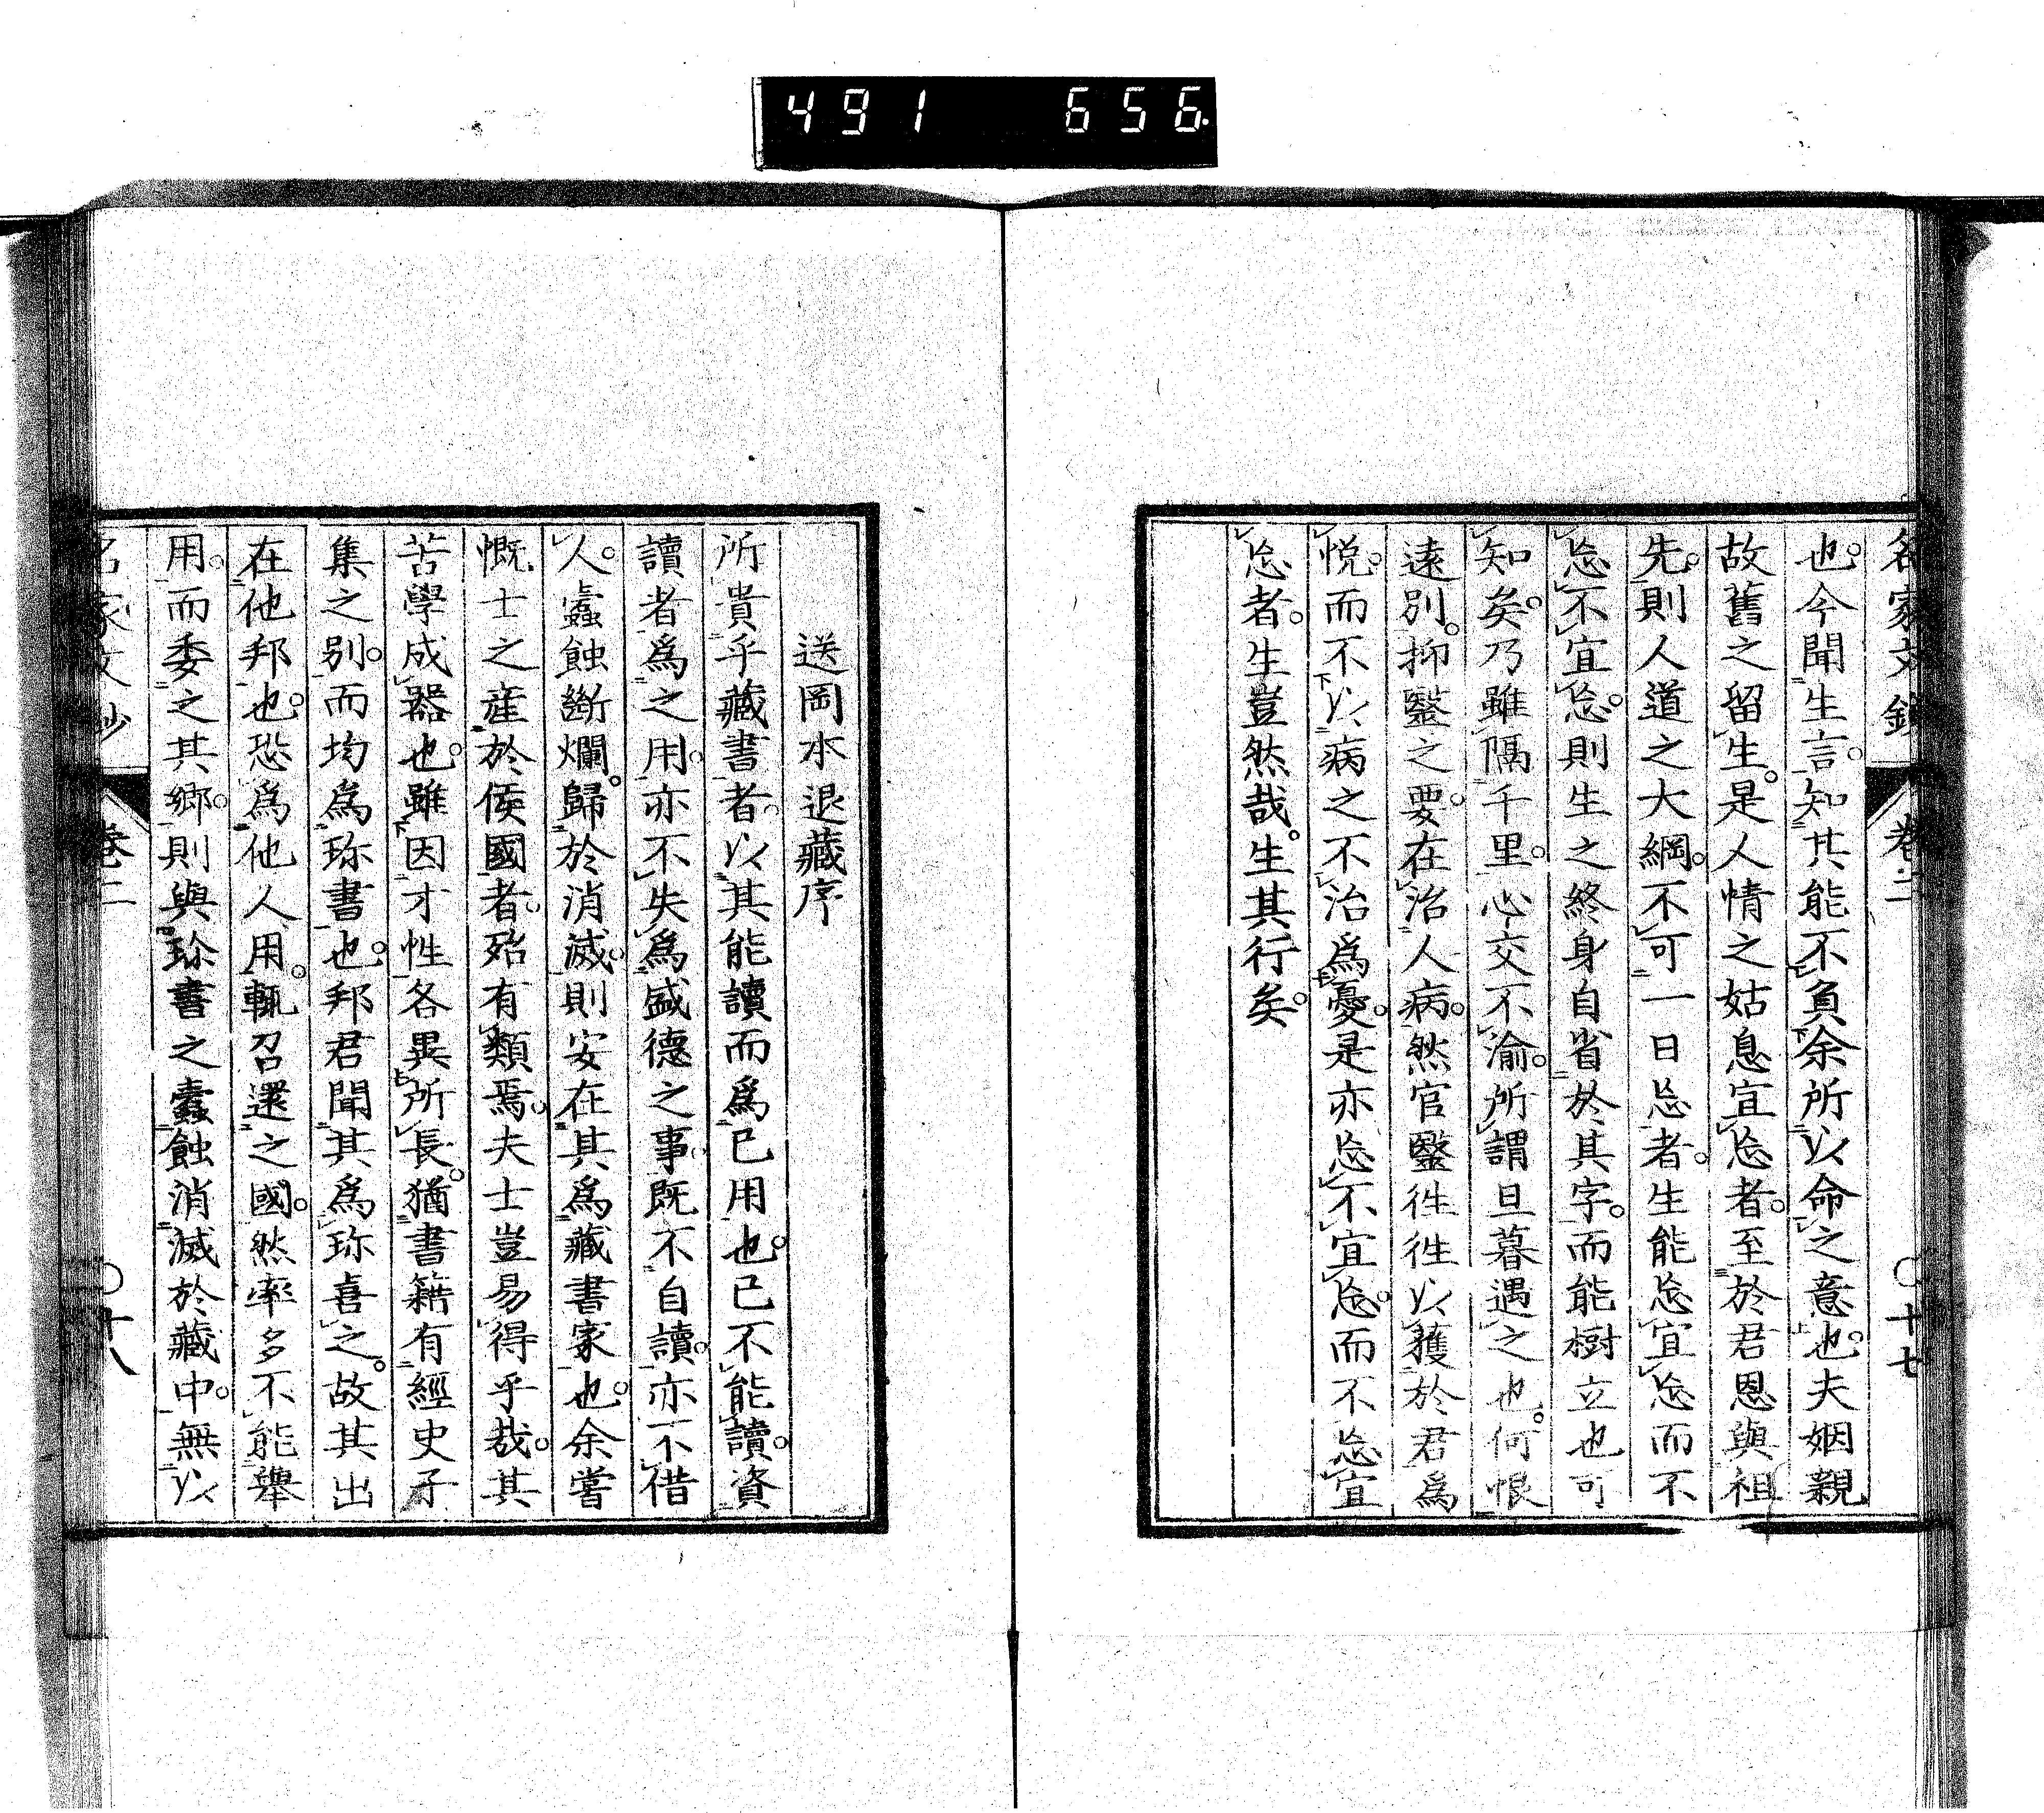 491 656
名家文鈔 卷二 〇十七
也。今聞生言。知其能不負余所以命之意也。夫姻親
故舊之留生。是人情之姑息宜忘者。至於君恩與祖
先。則人道之大綱。不可一日忘者。生能忘宜忘而不
忘不宜忘。則生之終身自省於其字。而能樹立也可
知矣。乃雖隔千里。心交不渝。所謂旦暮遇之也。何恨
遠別。抑醫之要。在治人病。然官醫徃徃以獲於君為
悦。而不以病之不治爲憂。是亦忘不宜忘。而不忘宜
忘者。生豈然哉。生其行矣。
送岡本退藏序
所貴乎藏書者。以其能讀而爲已用也。已不能讀。資
讀者爲之用。亦不失爲盛德之事。既不自讀。亦不借
人。蠧蝕斷爛。歸於消滅。則安在其爲藏書家也。余嘗
慨士之産於侯國者。殆有類焉。夫士豈易得乎哉。其
苦學成器也。雖因才性各異所長。猶書籍有經史子
集之別。而均為珎書也。邦君聞其爲珎喜之。故其出
在他邦也。恐爲他人用。輒召還之國。然率多不能舉
用。而委之其鄉。則與珎書之蠹蝕消滅於藏中。無以
名家文鈔 卷二 〇十八